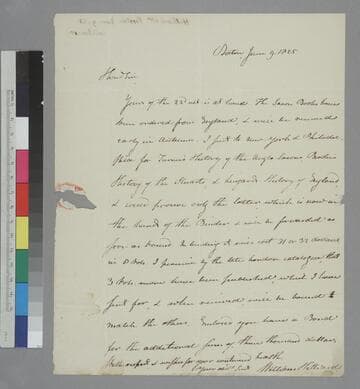 Boston June 9. 1825
Hond Sir
Yours of the 22d ult is at hand. The Saxon Books have
been ordered from England, & will be received
early in Autumn. I sent to New York & Philadel
phia for Turners History of the Anglo Saxons Brodies
History of the Stuarts, & Lingards History of England
& could procure only the latter which is now in
the hands of the Binder & will be forwarded as
soon as bound & binding it will cost
in 8 Vols. I perceive by the late London catalogue that
3 Vols more have been published, which I have
sent for, & when received will be bound to
match the others. Enclosed you have a Bond
for the additional sum of three thousand dollars
With respect & wishes for your continued health
I am Your obt Servt William Hilliard